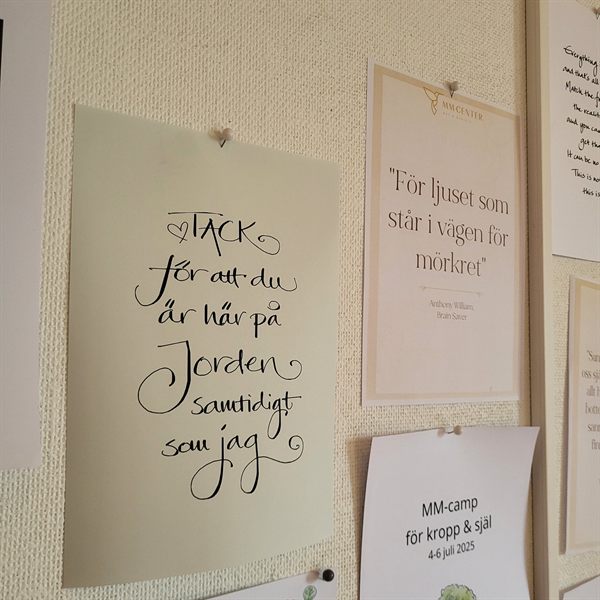 TACK
för att du
är här på
Jorden
samtidigt
som jag
MM CENTER
"För ljuset som
står i vägen för
mörkret"
Anthony William,
Brain Saver
MM-camp
för kropp & själ
4-6 juli 2025
Everything
and that's all
Match the
the reali
and you can
get tha
It can be no
This is no
this is
oss sjä
allt